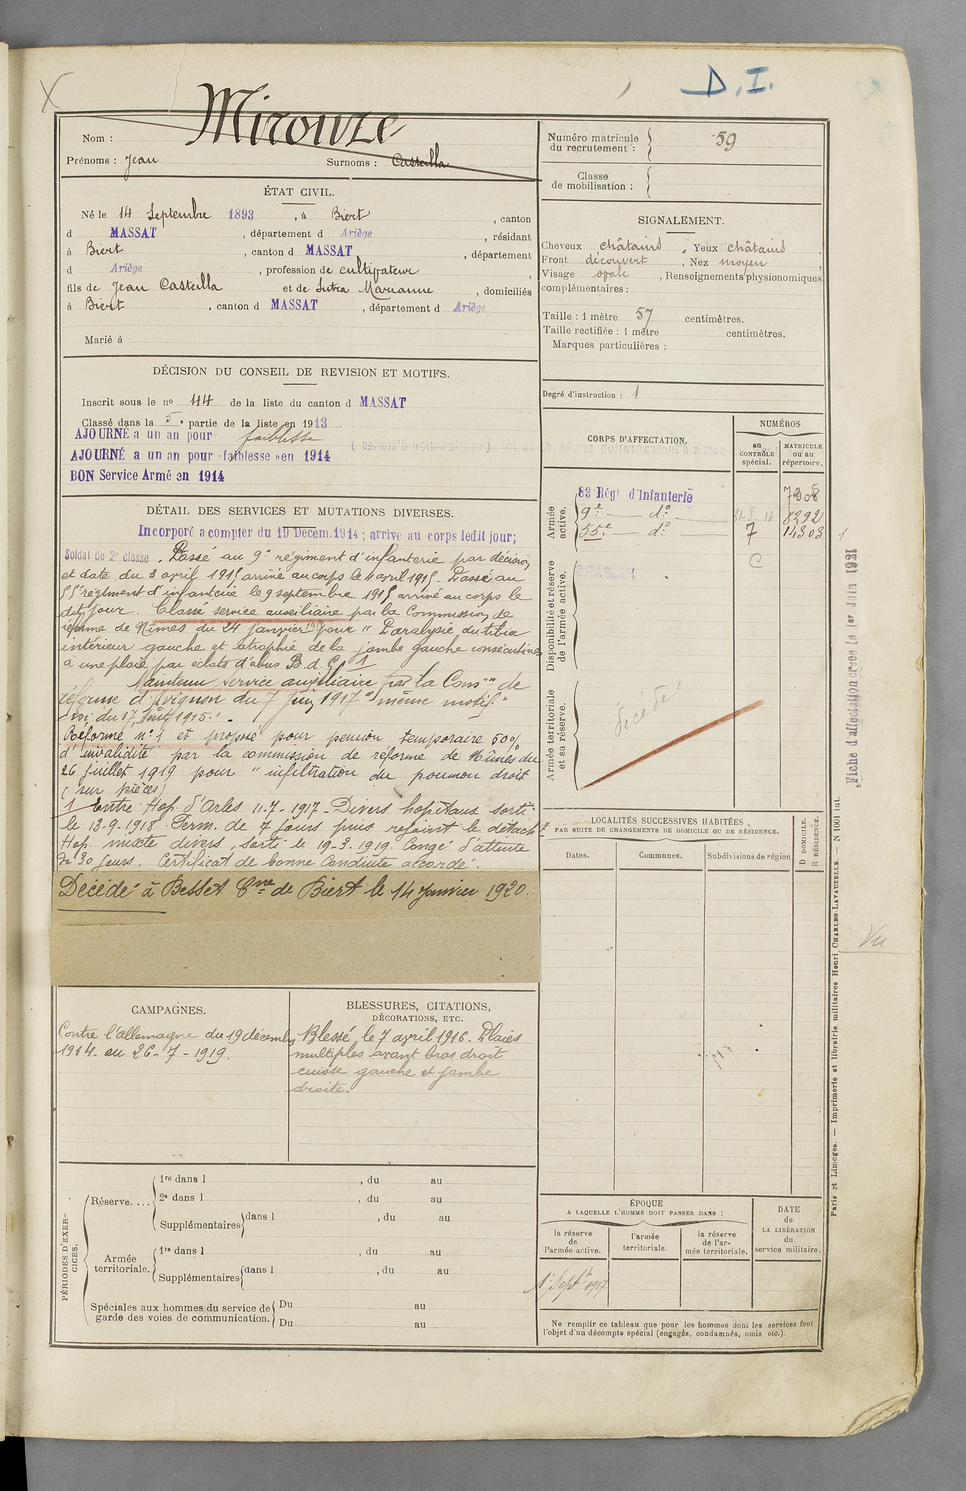 D.I.
Nom : Mirouze
Prénoms : Jean Surnoms : Casteilla
Numéro matricule du recrutement : 59
Classe de mobilisation :
ÉTAT CIVIL.
Né le 14 Septembre 1893, à Biert, canton
d MASSAT, département d Ariège, résidant
à Biert, canton d MASSAT, département
d Ariège, profession de cultivateur
fils de Jean Casteilla et de Sutra Marianne, domiciliés
à Biert, canton d MASSAT, département d Ariège
Marié à
SIGNALEMENT.
Cheveux châtains, Yeux châtains
Front découvert, Nez moyen
Visage ovale, Renseignements physionomiques
complémentaires :
Taille : 1 mètre 57 centimètres.
Taille rectifiée : 1 mètre centimètres.
Marques particulières :
DÉCISION DU CONSEIL DE REVISION ET MOTIFS.
Inscrit sous le no 44 de la liste du canton d MASSAT
Classé dans la 5e partie de la liste en 1913.
AJOURNÉ a un an pour faiblesse
AJOURNÉ a un an pour "faiblesse" en 1914
BON Service Armé en 1914
Degré d'instruction : 1
CORPS D'AFFECTATION.
NUMÉROS
au CONTRÔLE spécial.
MATRICULE ou au répertoire.
Armée active.
83 Régt d'Infanterie
9e — do — 8292
55e — do — 7 14303
C
Disponibilité et réserve de l'armée active.
Armée territoriale et sa réserve.
décédé
DÉTAIL DES SERVICES ET MUTATIONS DIVERSES.
Incorporé a compter du 19 Décem. 1914 ; arrive au corps ledit jour;
Soldat de 2e classe. Passé au 9e régiment d'infanterie par décision
et date du 3 avril 1915 arrivé au corps le 4 avril 1915. Passé au
55e régiment d'infanterie le 9 septembre 1915 arrivé au corps le
dit jour. Classé service auxiliaire par la Commission de
réforme de Nîmes du 24 Janvier 1917 pour "Paralysie du tibia
intérieur gauche et atrophie de la jambe gauche consécutives
à une plaie par éclats d'obus B.d.G. 1
Maintenu service auxiliaire par la Comson de
réforme d'Avignon du 7 Juin 1917 "même motif"
Loi du 17 Août 1915.
Réformé no 1 et proposé pour pension temporaire 50%
d'invalidité par la commission de réforme de Nîmes du
26 juillet 1919 pour "infiltration du poumon droit
(sur pièces)
1 Entré Hop. d'Arles 11-7-1917 - Divers hopitaux sorti
le 13-9-1918 Perm. de 7 jours puis rejoint le détacht
Hop. mixte divers, sorti le 19-3-1919 Congé d'attente
de 30 jours. Certificat de bonne Conduite accordé.
Décédé à Besset Cne de Biert le 14 Janvier 1920.
Fiche d'affectation créée le 1er Juin 1921
LOCALITÉS SUCCESSIVES HABITÉES
PAR SUITE DE CHANGEMENTS DE DOMICILE OU DE RÉSIDENCE.
Dates. Communes. Subdivisions de région
D DOMICILE.
R RÉSIDENCE.
Vu
CAMPAGNES.
Contre l'Allemagne du 19 décembre
1914 au 26-7-1919.
BLESSURES, CITATIONS,
DÉCORATIONS, ETC.
Blessé le 7 avril 1916. Plaies
multiples avant bras droit
cuisse gauche et jambe
droite.
PÉRIODES D'EXERCICES.
Réserve....
1re dans l , du au
2e dans l , du au
Supplémentaires dans l , du au
Armée territoriale.
1re dans l , du au
Supplémentaires dans l , du au
Spéciales aux hommes du service de garde des voies de communication.
Du au
Du au
ÉPOQUE
A LAQUELLE L'HOMME DOIT PASSER DANS :
la réserve de l'armée active.
l'armée territoriale.
la réserve de l'armée territoriale.
DATE de LA LIBÉRATION du service militaire.
1er Sept 1917
Ne remplir ce tableau que pour les hommes dont les services font
l'objet d'un décompte spécial (engagés, condamnés, omis, etc.).
Paris et Limoges. — Imprimerie et librairie militaires Henri CHARLES-LAVAUZELLE. — N 1001 int.